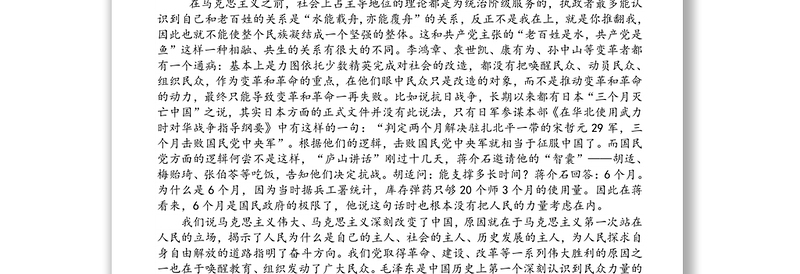 在马克思主义之前，社会上占主导地位的理论都是为统治阶级服务的，执政者最多能认
识到自己和老百姓的关系是“水能载舟，亦能覆舟”的关系，反正不是我在上，就是你推翻我，
因此也就不能使整个民族凝结成一个坚强的整体。这和共产党主张的“老百姓是水，共产党是
鱼”这样一种相融、共生的关系有很大的不同。李鸿章、袁世凯、康有为、孙中山等变革者都
有一个通病：基本上是力图依托少数精英完成对社会的改造，都没有把唤醒民众、动员民众、
组织民众，作为变革和革命的重点，在他们眼中民众只是改造的对象，而不是推动变革和革命
的动力，最终只能导致变革和革命一再失败。比如说抗日战争，长期以来都有日本“三个月灭
亡中国”之说，其实日本方面的正式文件并没有此说法，只有日军参谋本部《在华北使用武力
时对华战争指导纲要》中有这样的一句：“判定两个月解决驻扎北平一带的宋哲元 29 军，三
个月击败国民党中央军”。根据他们的逻辑，击败国民党中央军就相当于征服中国了。而国民
党方面的逻辑何尝不是这样，“庐山讲话”刚过十几天，蒋介石邀请他的“智囊”——胡适、
梅贻琦、张伯苓等吃饭，告知他们决定抗战。胡适问：能支撑多长时间？蒋介石回答：6 个月。
为什么是 6 个月，因为当时据兵工署统计，库存弹药只够 20 个师 3 个月的使用量。因此在蒋
看来，6 个月是国民政府的极限了，他说这句话时也根本没有把人民的力量考虑在内。
我们说马克思主义伟大、马克思主义深刻改变了中国，原因就在于马克思主义第一次站在
人民的立场，揭示了人民为什么是自己的主人、社会的主人、历史发展的主人，为人民探求自
身自由解放的道路指明了奋斗方向。我们党取得革命、建设、改革等一系列伟大胜利的原因之
一也在于唤醒教育、组织发动了广大民众。毛泽东是中国历史上第一个深刻认识到民众力量的